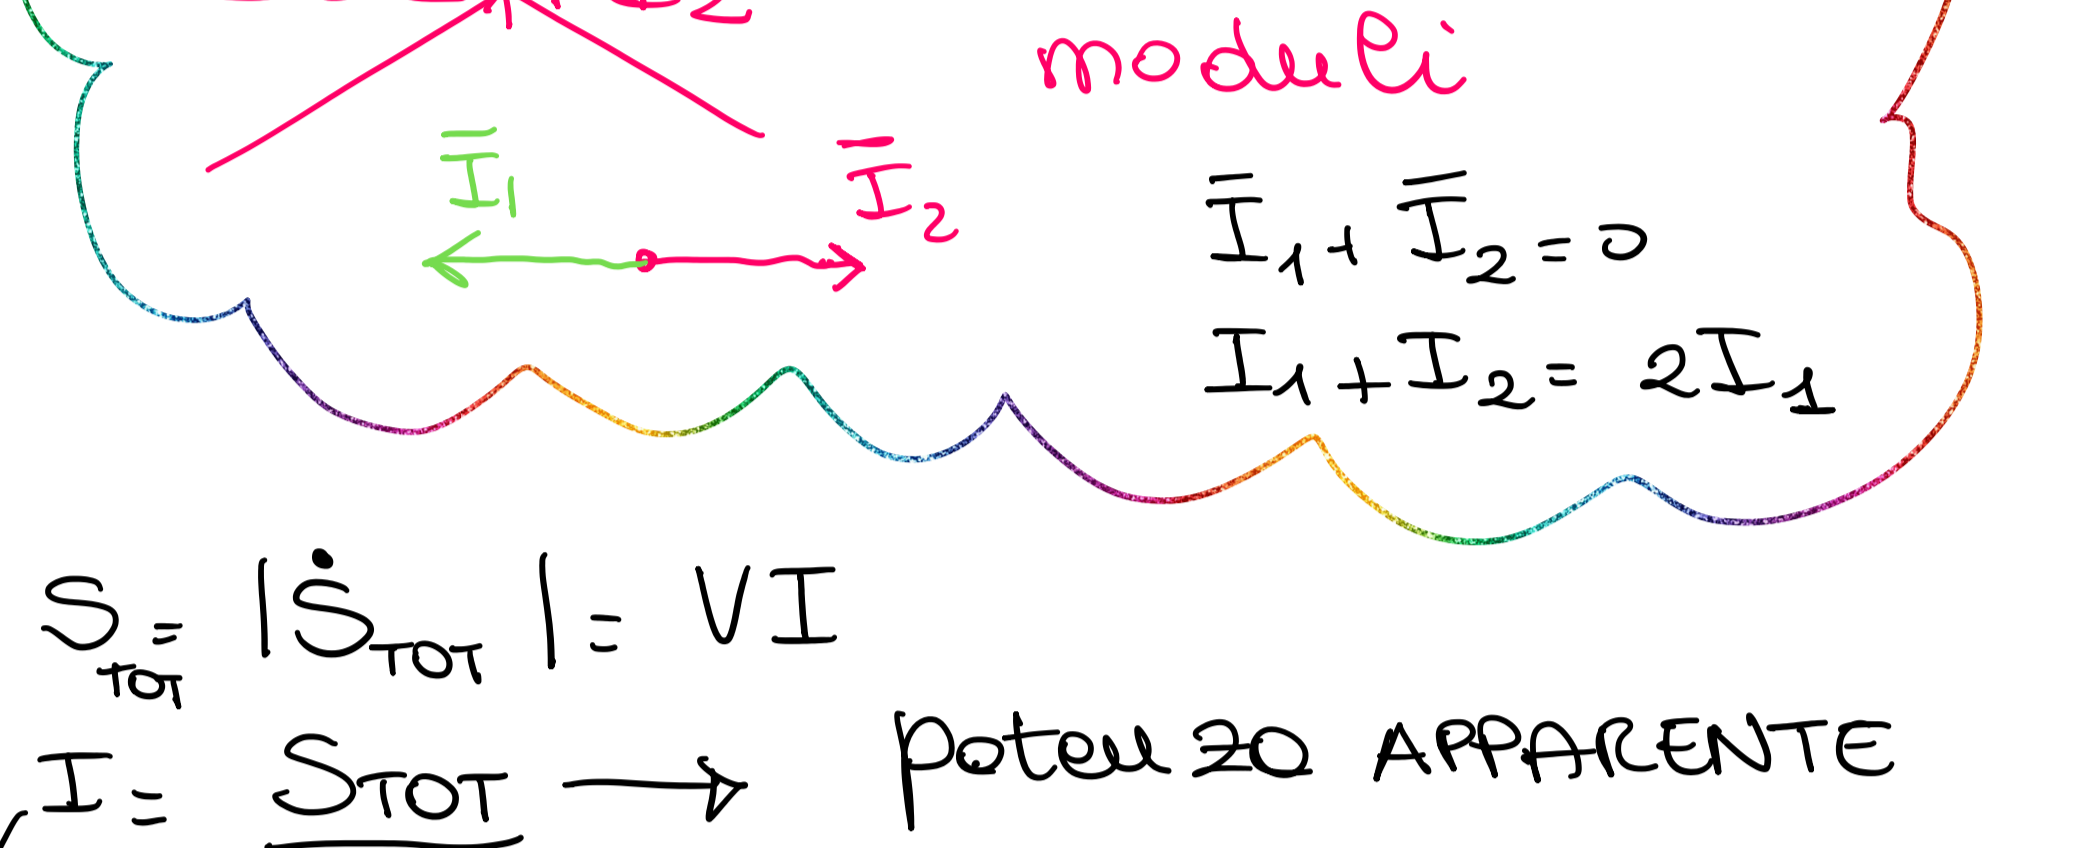 moduli
I̅1 I̅2
I̅1 + I̅2 = 0
I1 + I2 = 2I1
STOT = |ṠTOT| = VI
I = STOT → potenza APPARENTE